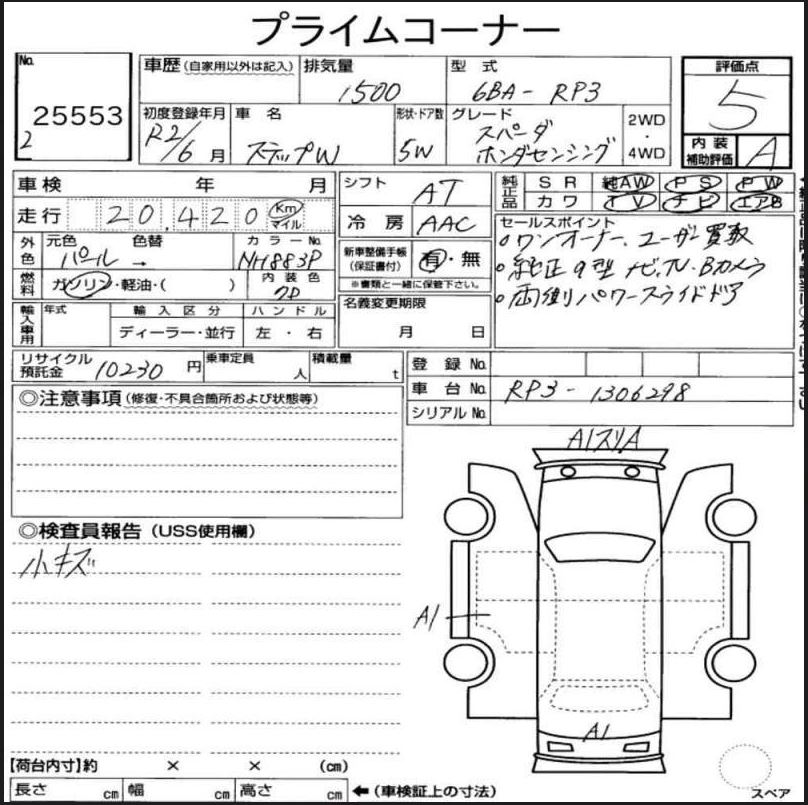 プライムコーナー
No. 25553
2
車歴(自家用以外は記入) 排気量 1500 型式 6BA- RP3 評価点 5
初度登録年月 R2/6 月 車名 ステップW 形状・ドア数 5W グレード スパーダ ホンダセンシング 2WD・4WD 内装補助評価 A
車検 年 月 シフト AT 純正品 SR 純AW PS PW
走行 20,420 Km マイル 冷房 AAC カワ TV ナビ エアB
外色 元色 パール → 色替 カラーNo. NH883P 新車整備手帳(保証書付) 有・無
※書類と一緒に保管下さい。
セールスポイント
。ワンオーナー、ユーザー買取
。純正9型ナビ、TV・Bカメラ
。両側パワースライドドア
燃料 ガソリン・軽油・( ) 内装色
名義変更期限 月 日
輸入車用 年式 輸入区分 ディーラー・並行 ハンドル 左・右
リサイクル預託金 10230 円 乗車定員 人 積載量 t
登録 No.
車台 No. RP3-1306298
シリアル No.
◎注意事項(修復・不具合箇所および状態等)
◎検査員報告(USS使用欄)
小キズ
A1スリA
A1
A1
【荷台内寸】約 × × (cm)
長さ cm 幅 cm 高さ cm ←(車検証上の寸法)
スペア